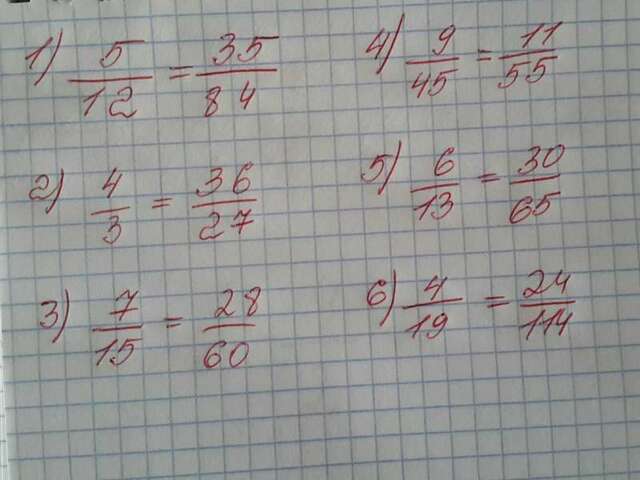 1) 5/12 = 35/84
2) 4/3 = 36/27
3) 7/15 = 28/60
4) 9/45 = 11/55
5) 6/13 = 30/65
6) 4/19 = 24/114